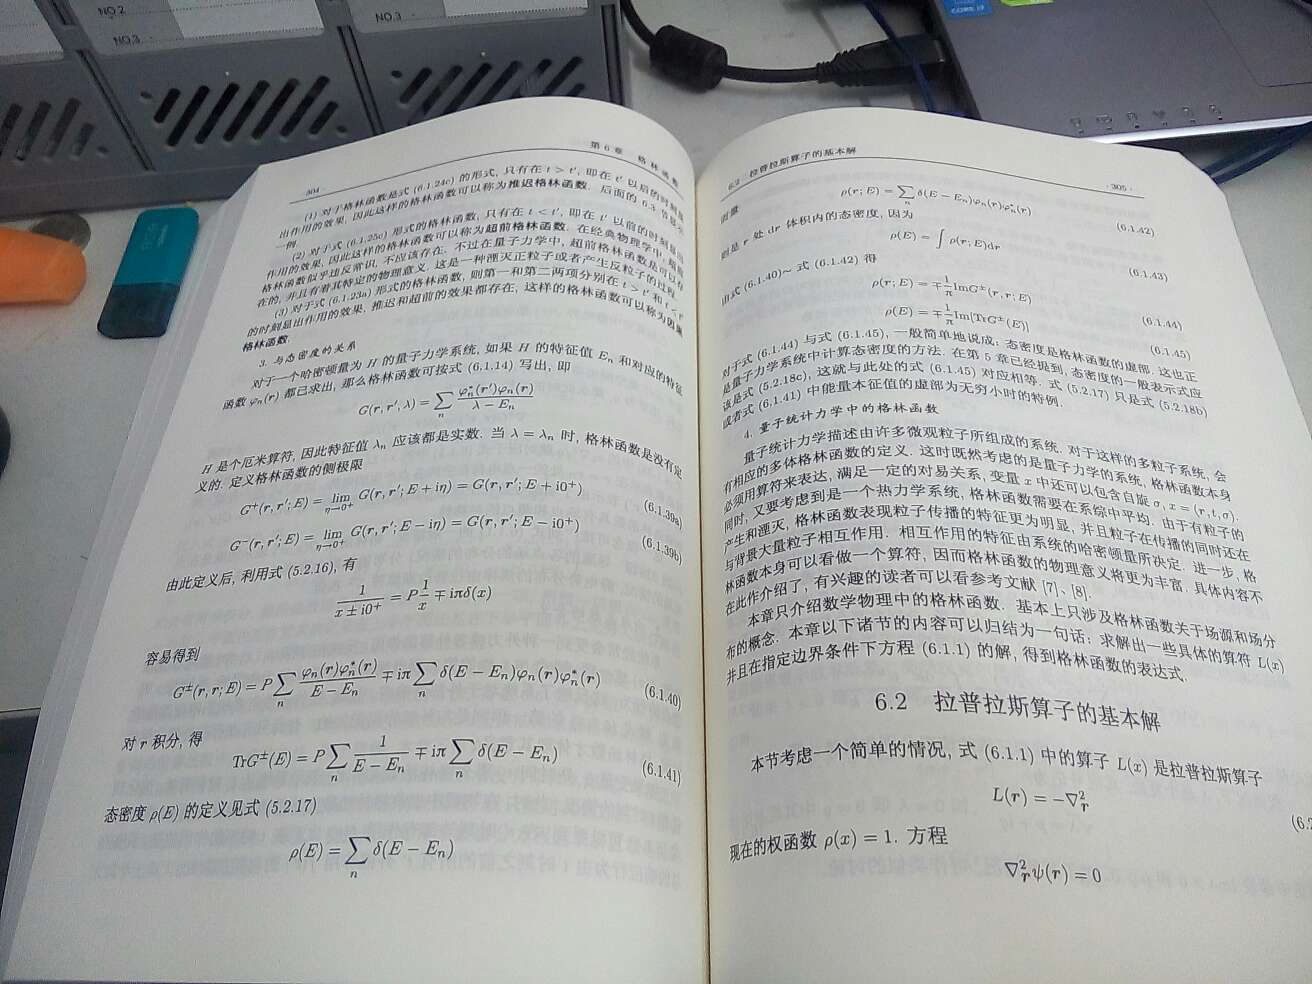 NO.2
NO.3
NO.3
CORE i3
· 304 ·
第 6 章 格林函数
(1) 对于格林函数是式 (6.1.24c) 的形式, 只有在 t > t′, 即在 t′ 以后的时刻显
出作用的效果, 因此这样的格林函数可以称为推迟格林函数. 后面的 6.3 节显示
一例.
(2) 对于式 (6.1.25c) 形式的格林函数, 只有在 t < t′, 即在 t′ 以前的时刻显出
作用的效果, 因此这样的格林函数可以称为超前格林函数. 在经典物理学中, 超前
格林函数似乎违反常识, 不应该存在. 不过在量子力学中, 超前格林函数是可以存
在的, 并且有着其特定的物理意义. 这是一种湮灭正粒子或者产生反粒子的过程.
(3) 对于式 (6.1.23a) 形式的格林函数, 则第一和第二两项分别在 t > t′ 和 t < t′
的时刻显出作用的效果. 推迟和超前的效果都存在, 这样的格林函数可以称为因果
格林函数.
3. 与态密度的关系
对于一个哈密顿量为 H 的量子力学系统, 如果 H 的特征值 Eₙ 和对应的特征
函数 φₙ(r) 都已求出, 那么格林函数可按式 (6.1.14) 写出, 即
G(r, r′, λ) = ∑ₙ φₙ*(r′)φₙ(r) / (λ − Eₙ)
H 是个厄米算符, 因此特征值 λₙ 应该都是实数. 当 λ = λₙ 时, 格林函数是没有定
义的. 定义格林函数的侧极限
G⁺(r, r′; E) = lim_{η→0⁺} G(r, r′; E + iη) = G(r, r′; E + i0⁺) (6.1.39a)
G⁻(r, r′; E) = lim_{η→0⁺} G(r, r′; E − iη) = G(r, r′; E − i0⁺) (6.1.39b)
由此定义后, 利用式 (5.2.16), 有
1/(x ± i0⁺) = P 1/x ∓ iπδ(x)
容易得到
G±(r, r; E) = P ∑ₙ φₙ(r)φₙ*(r) / (E − Eₙ) ∓ iπ ∑ₙ δ(E − Eₙ)φₙ(r)φₙ*(r) (6.1.40)
对 r 积分, 得
TrG±(E) = P ∑ₙ 1/(E − Eₙ) ∓ iπ ∑ₙ δ(E − Eₙ) (6.1.41)
态密度 ρ(E) 的定义见式 (5.2.17)
ρ(E) = ∑ₙ δ(E − Eₙ)
6.2 拉普拉斯算子的基本解
· 305 ·
而量
ρ(r; E) = ∑ₙ δ(E − Eₙ)φₙ(r)φₙ*(r) (6.1.42)
则是 r 处 dr 体积内的态密度, 因为
ρ(E) = ∫ ρ(r; E)dr (6.1.43)
由式 (6.1.40)~ 式 (6.1.42) 得
ρ(r; E) = ∓ 1/π ImG±(r, r; E) (6.1.44)
ρ(E) = ∓ 1/π Im[TrG±(E)] (6.1.45)
对于式 (6.1.44) 与式 (6.1.45), 一般简单地说成: 态密度是格林函数的虚部. 这也正
是量子力学系统中计算态密度的方法. 在第 5 章已经提到, 态密度的一般表示式应
该是式 (5.2.18c), 这就与此处的式 (6.1.45) 对应相等. 式 (5.2.17) 只是式 (5.2.18b)
或者式 (6.1.41) 中能量本征值的虚部为无穷小时的特例.
4. 量子统计力学中的格林函数
量子统计力学描述由许多微观粒子所组成的系统. 对于这样的多粒子系统, 会
有相应的多体格林函数的定义. 这时既然考虑的是量子力学的系统, 格林函数本身
必须用算符来表达, 满足一定的对易关系, 变量 x 中还可以包含自旋 σ, x = (r, t, σ).
同时, 又要考虑到是一个热力学系统, 格林函数需要在系综中平均. 由于有粒子的
产生和湮灭, 格林函数表现粒子传播的特征更为明显, 并且粒子在传播的同时还在
与背景大量粒子相互作用. 相互作用的特征由系统的哈密顿量所决定. 进一步, 格
林函数本身可以看做一个算符, 因而格林函数的物理意义将更为丰富. 具体内容不
在此作介绍了, 有兴趣的读者可以看参考文献 [7]、[8].
本章只介绍数学物理中的格林函数. 基本上只涉及格林函数关于场源和场分
布的概念. 本章以下诸节的内容可以归结为一句话: 求解出一些具体的算符 L(x)
并且在指定边界条件下方程 (6.1.1) 的解, 得到格林函数的表达式.
6.2 拉普拉斯算子的基本解
本节考虑一个简单的情况, 式 (6.1.1) 中的算子 L(x) 是拉普拉斯算子
L(r) = −∇²ᵣ (6.2
现在的权函数 ρ(x) = 1. 方程
∇²ᵣψ(r) = 0